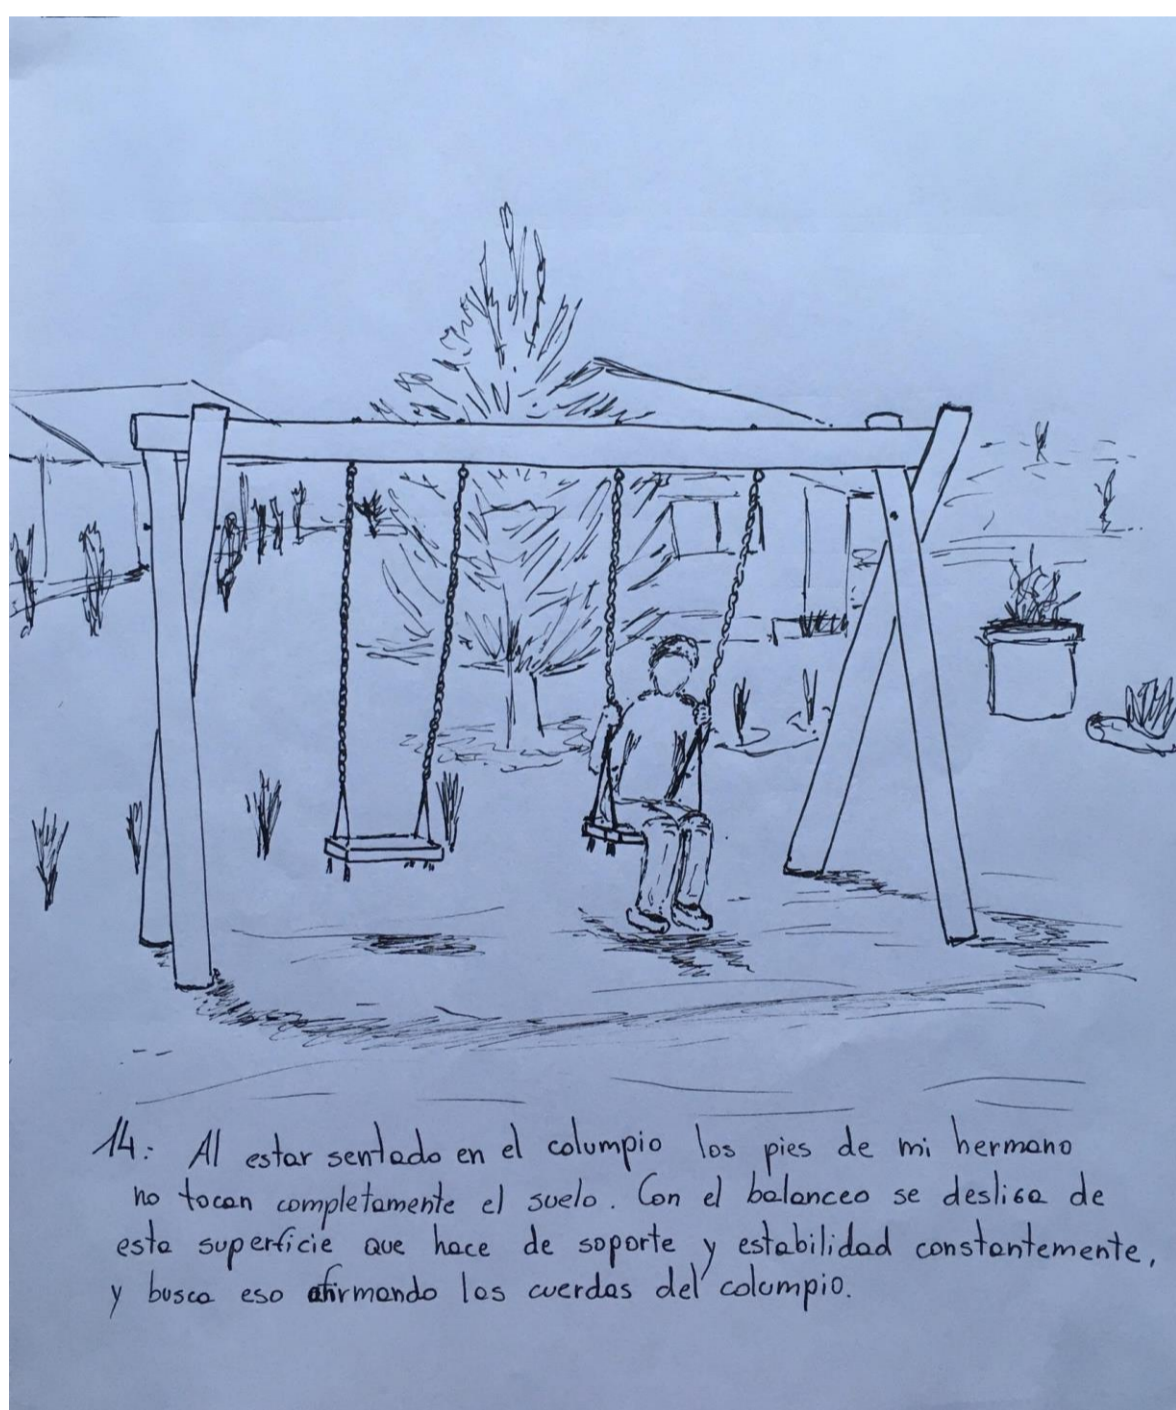 14: Al estar sentado en el columpio los pies de mi hermano
no tocan completamente el suelo. Con el balanceo se deslisa de
esta superficie que hace de soporte y estabilidad constantemente,
y busca eso afirmando las cuerdas del columpio.